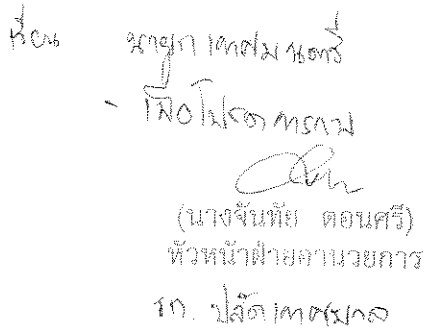 เรียน นายกเทศมนตรี
- เพื่อโปรดทราบ
(นางจันทัย ดอนศรี)
หัวหน้าฝ่ายอำนวยการ
รก. ปลัดเทศบาล